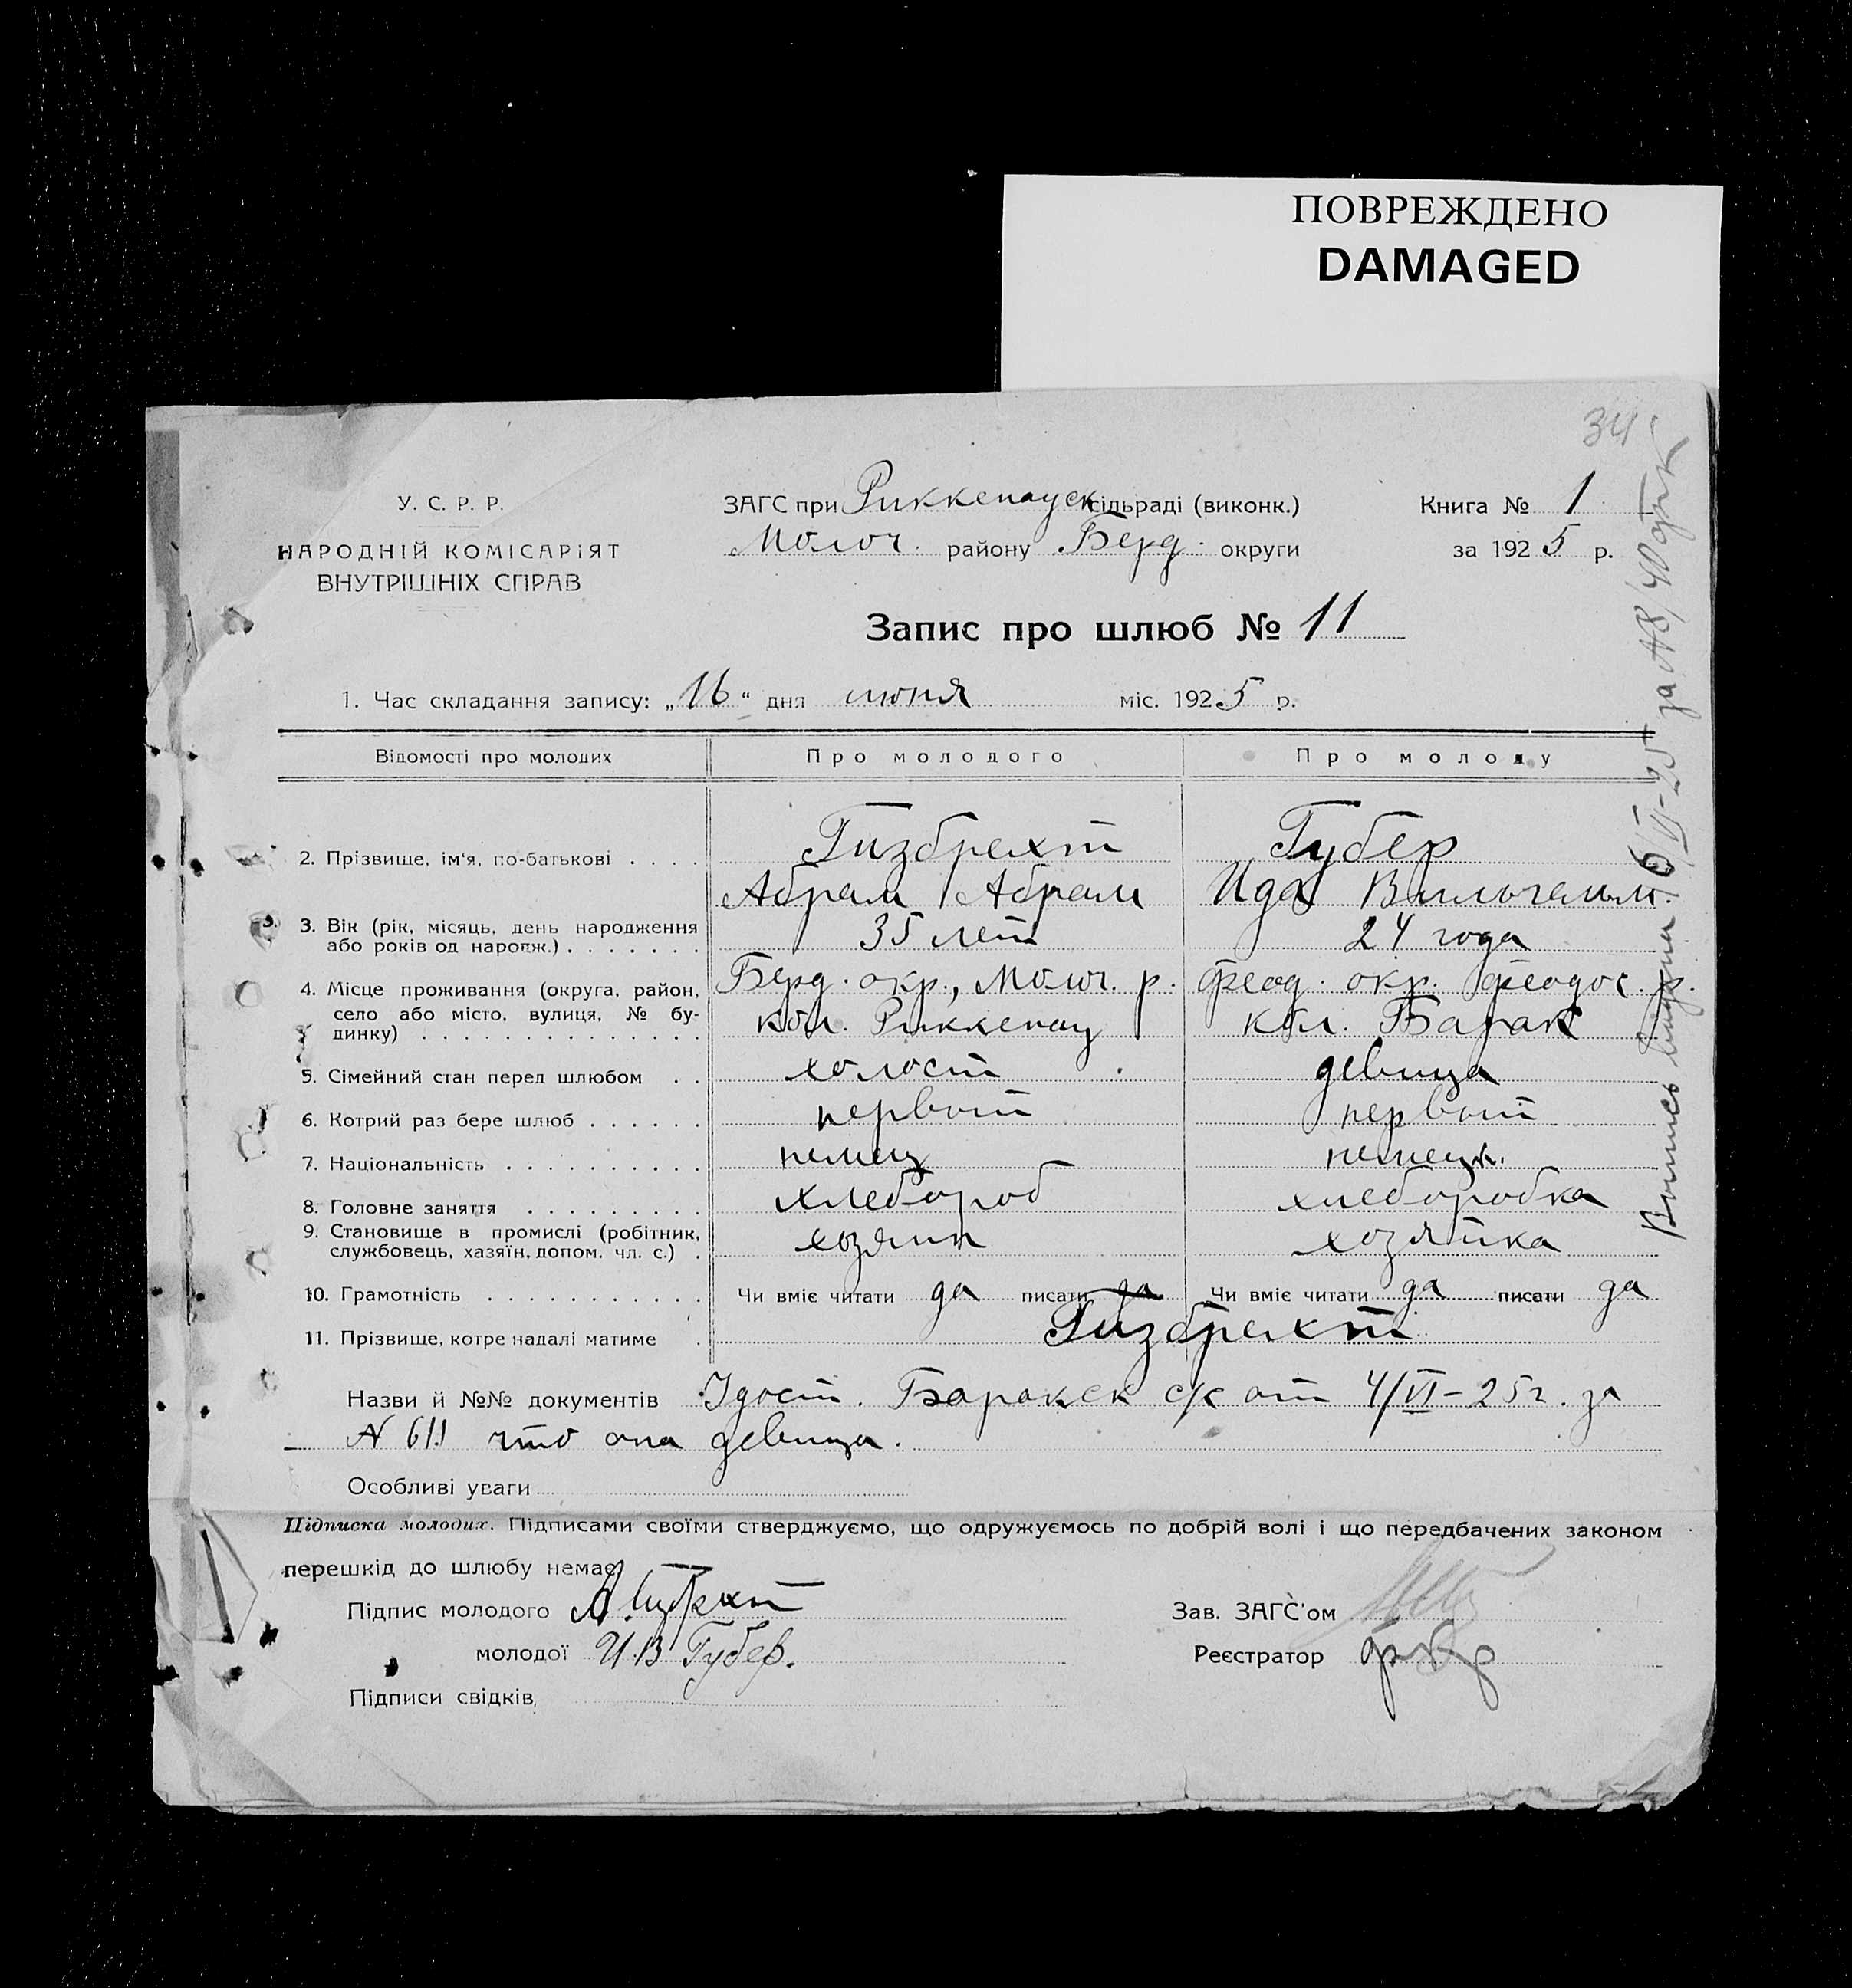 ПОВРЕЖДЕНО
DAMAGED
34
У. С. Р. Р.
НАРОДНІЙ КОМІСАРІЯТ
ВНУТРІШНІХ СПРАВ
ЗАГС при Риккенауск сільраді (виконк.)
Молоч. району Берд. округи
Книга № 1
за 1925 р.
Запис про шлюб № 11
1. Час складання запису: „16“ дня июня міс. 1925 р.
Відомості про молодих Про молодого Про молоду
2. Прізвище, ім'я, по-батькові . . . . Гизбрехт Губер
Абрам Абрам Ида Вильгельм.
3. Вік (рік, місяць, день народження
або років од народж.) . . . . . . . 35 лет 24 года
4. Місце проживання (округа, район,
село або місто, вулиця, № бу-
динку) . . . . . . . . . . . . . .
Берд. окр., Молоч. р. Феод. окр. Феодос. р.
кол. Риккенау кол. Барак
5. Сімейний стан перед шлюбом . . холост девица
6. Котрий раз бере шлюб . . . . . . первый первый
7. Національність . . . . . . . . . . немец немецк.
8. Головне заняття . . . . . . . . . хлебороб хлеборобка
9. Становище в промислі (робітник,
службовець, хазяїн, допом. чл. с.) . хозяин хозяйка
10. Грамотність . . . . . . . . . . . Чи вміє читати да писати да Чи вміє читати да писати да
11. Прізвище, котре надалі матиме . Гизбрехт
Назви й №№ документів Удост. Баракск с/с от 4/VI-25г. за
№ 611 что она девица.
Особливі уваги
Підписка молодих. Підписами своїми стверджуємо, що одружуємось по добрій волі і що передбачених законом
перешкід до шлюбу немає
Підпис молодого
молодої И.В Губер.
Підписи свідків
Зав. ЗАГС'ом
Реєстратор
Выпись выдана 16/VI-25 за № 8/40